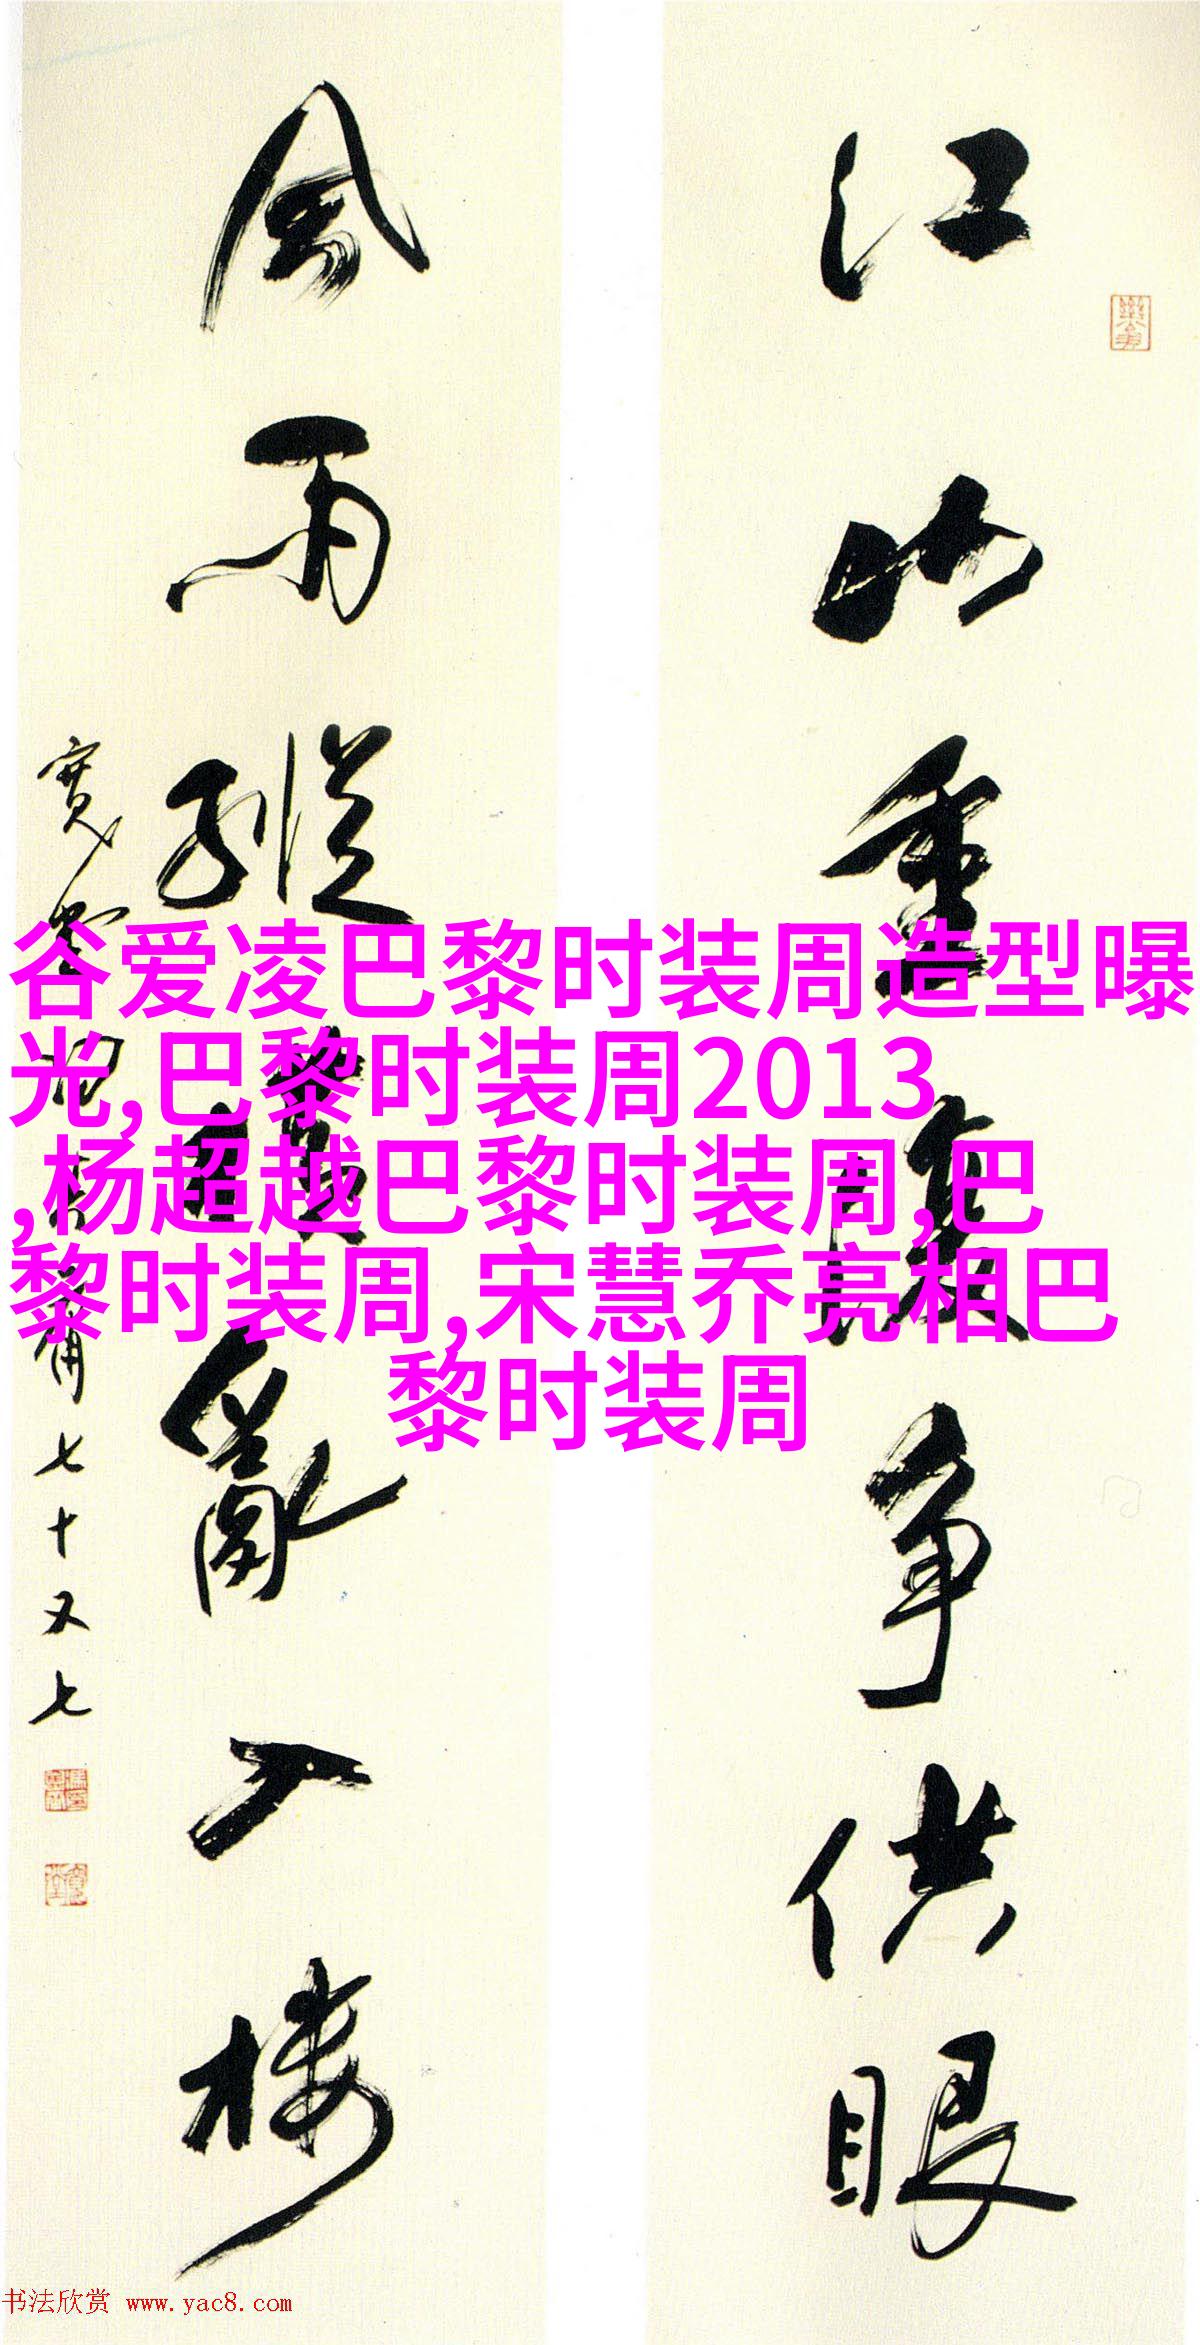 江山重複争供眼
風雨縱橫亂入樓
七十又七
谷爱凌巴黎时装周造型曝
光,巴黎时装周2013
,杨超越巴黎时装周,巴
黎时装周,宋慧乔亮相巴
黎时装周
书法欣赏 www.yac8.com